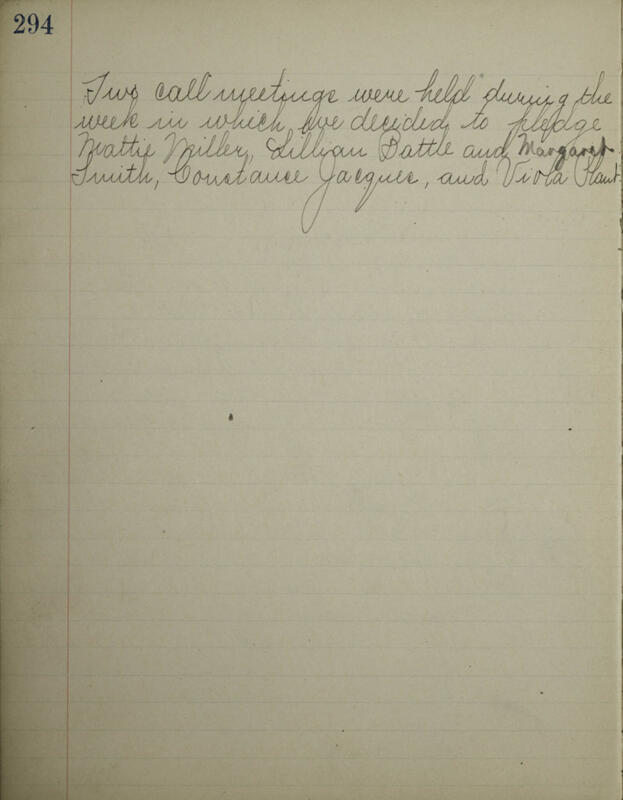 294
Two call meetings were held during the
week in which we decided to pledge
Mattie Miller, Lillian Battle and Margaret
Smith, Constance Jacques, and Viola Plant.